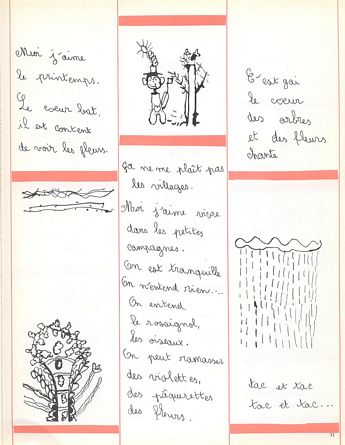 Moi j'aime
le printemps.
Le coeur bat,
il est content
de voir les fleurs.
Ça ne me plaît pas
les villages.
Moi j'aime vivre
dans les petites
campagnes.
On est tranquille
On n'entend rien...
On entend
le rossignol,
les oiseaux.
On peut ramasser
des violettes,
des pâquerettes
des fleurs.
C'est gai
le coeur
des arbres
et des fleurs
chante
tac et tac
tac et tac...
11